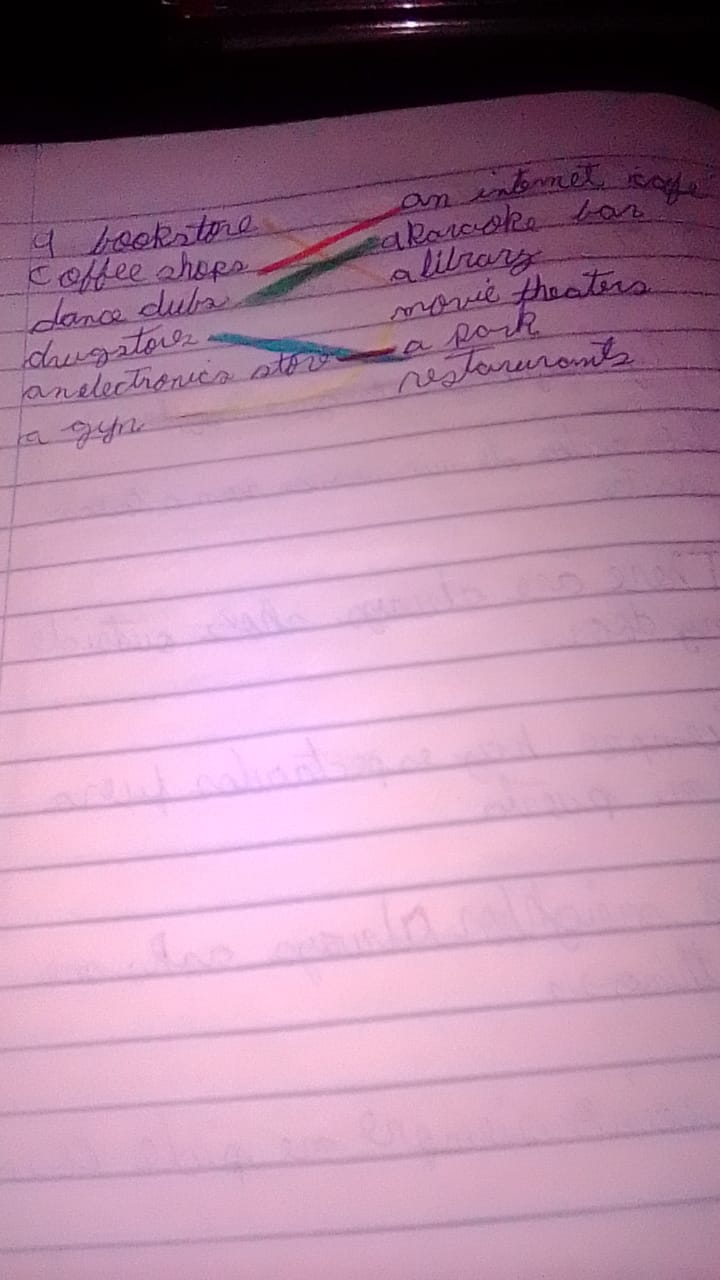 a bookstore
coffee shops
dance clubs
drugstores
an electronics store
a gyn
an internet cafe
a karaoke bar
a library
movie theaters
a park
restaururants